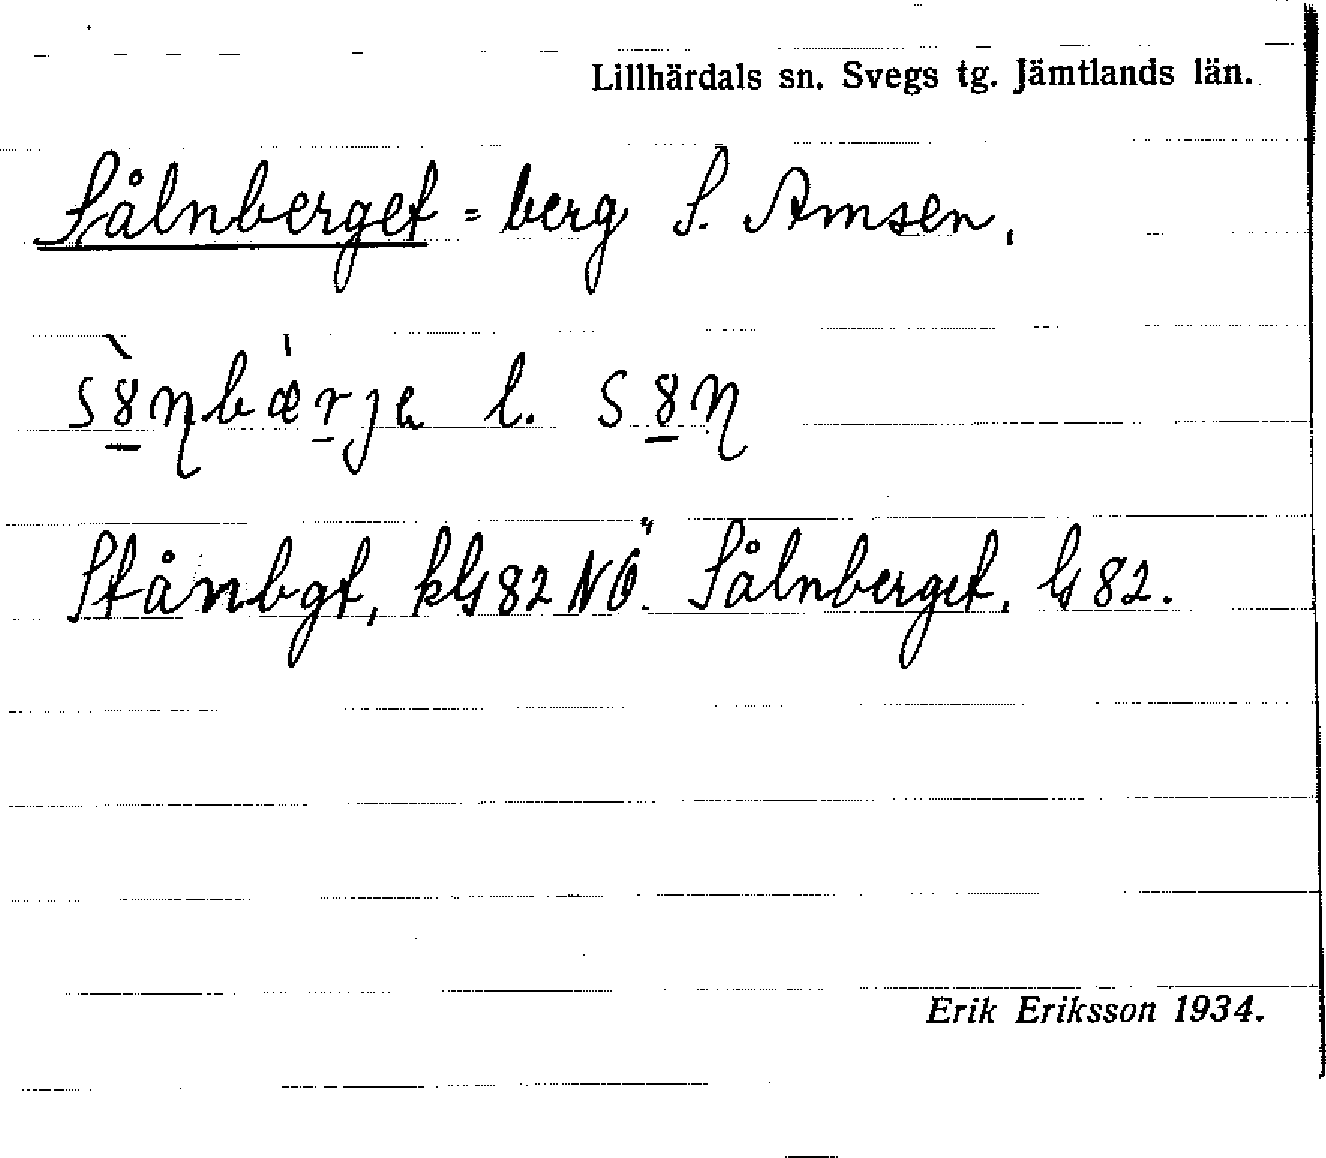 Lillhärdals sn. Svegs tg. Jämtlands län.
Sålnberget = berg S. Amsen.
s8̲̀ŋbǽr̲jə l. s8̲ŋ
Stånbgt, kG82NÖ. Sålnberget. G82.
Erik Eriksson 1934.